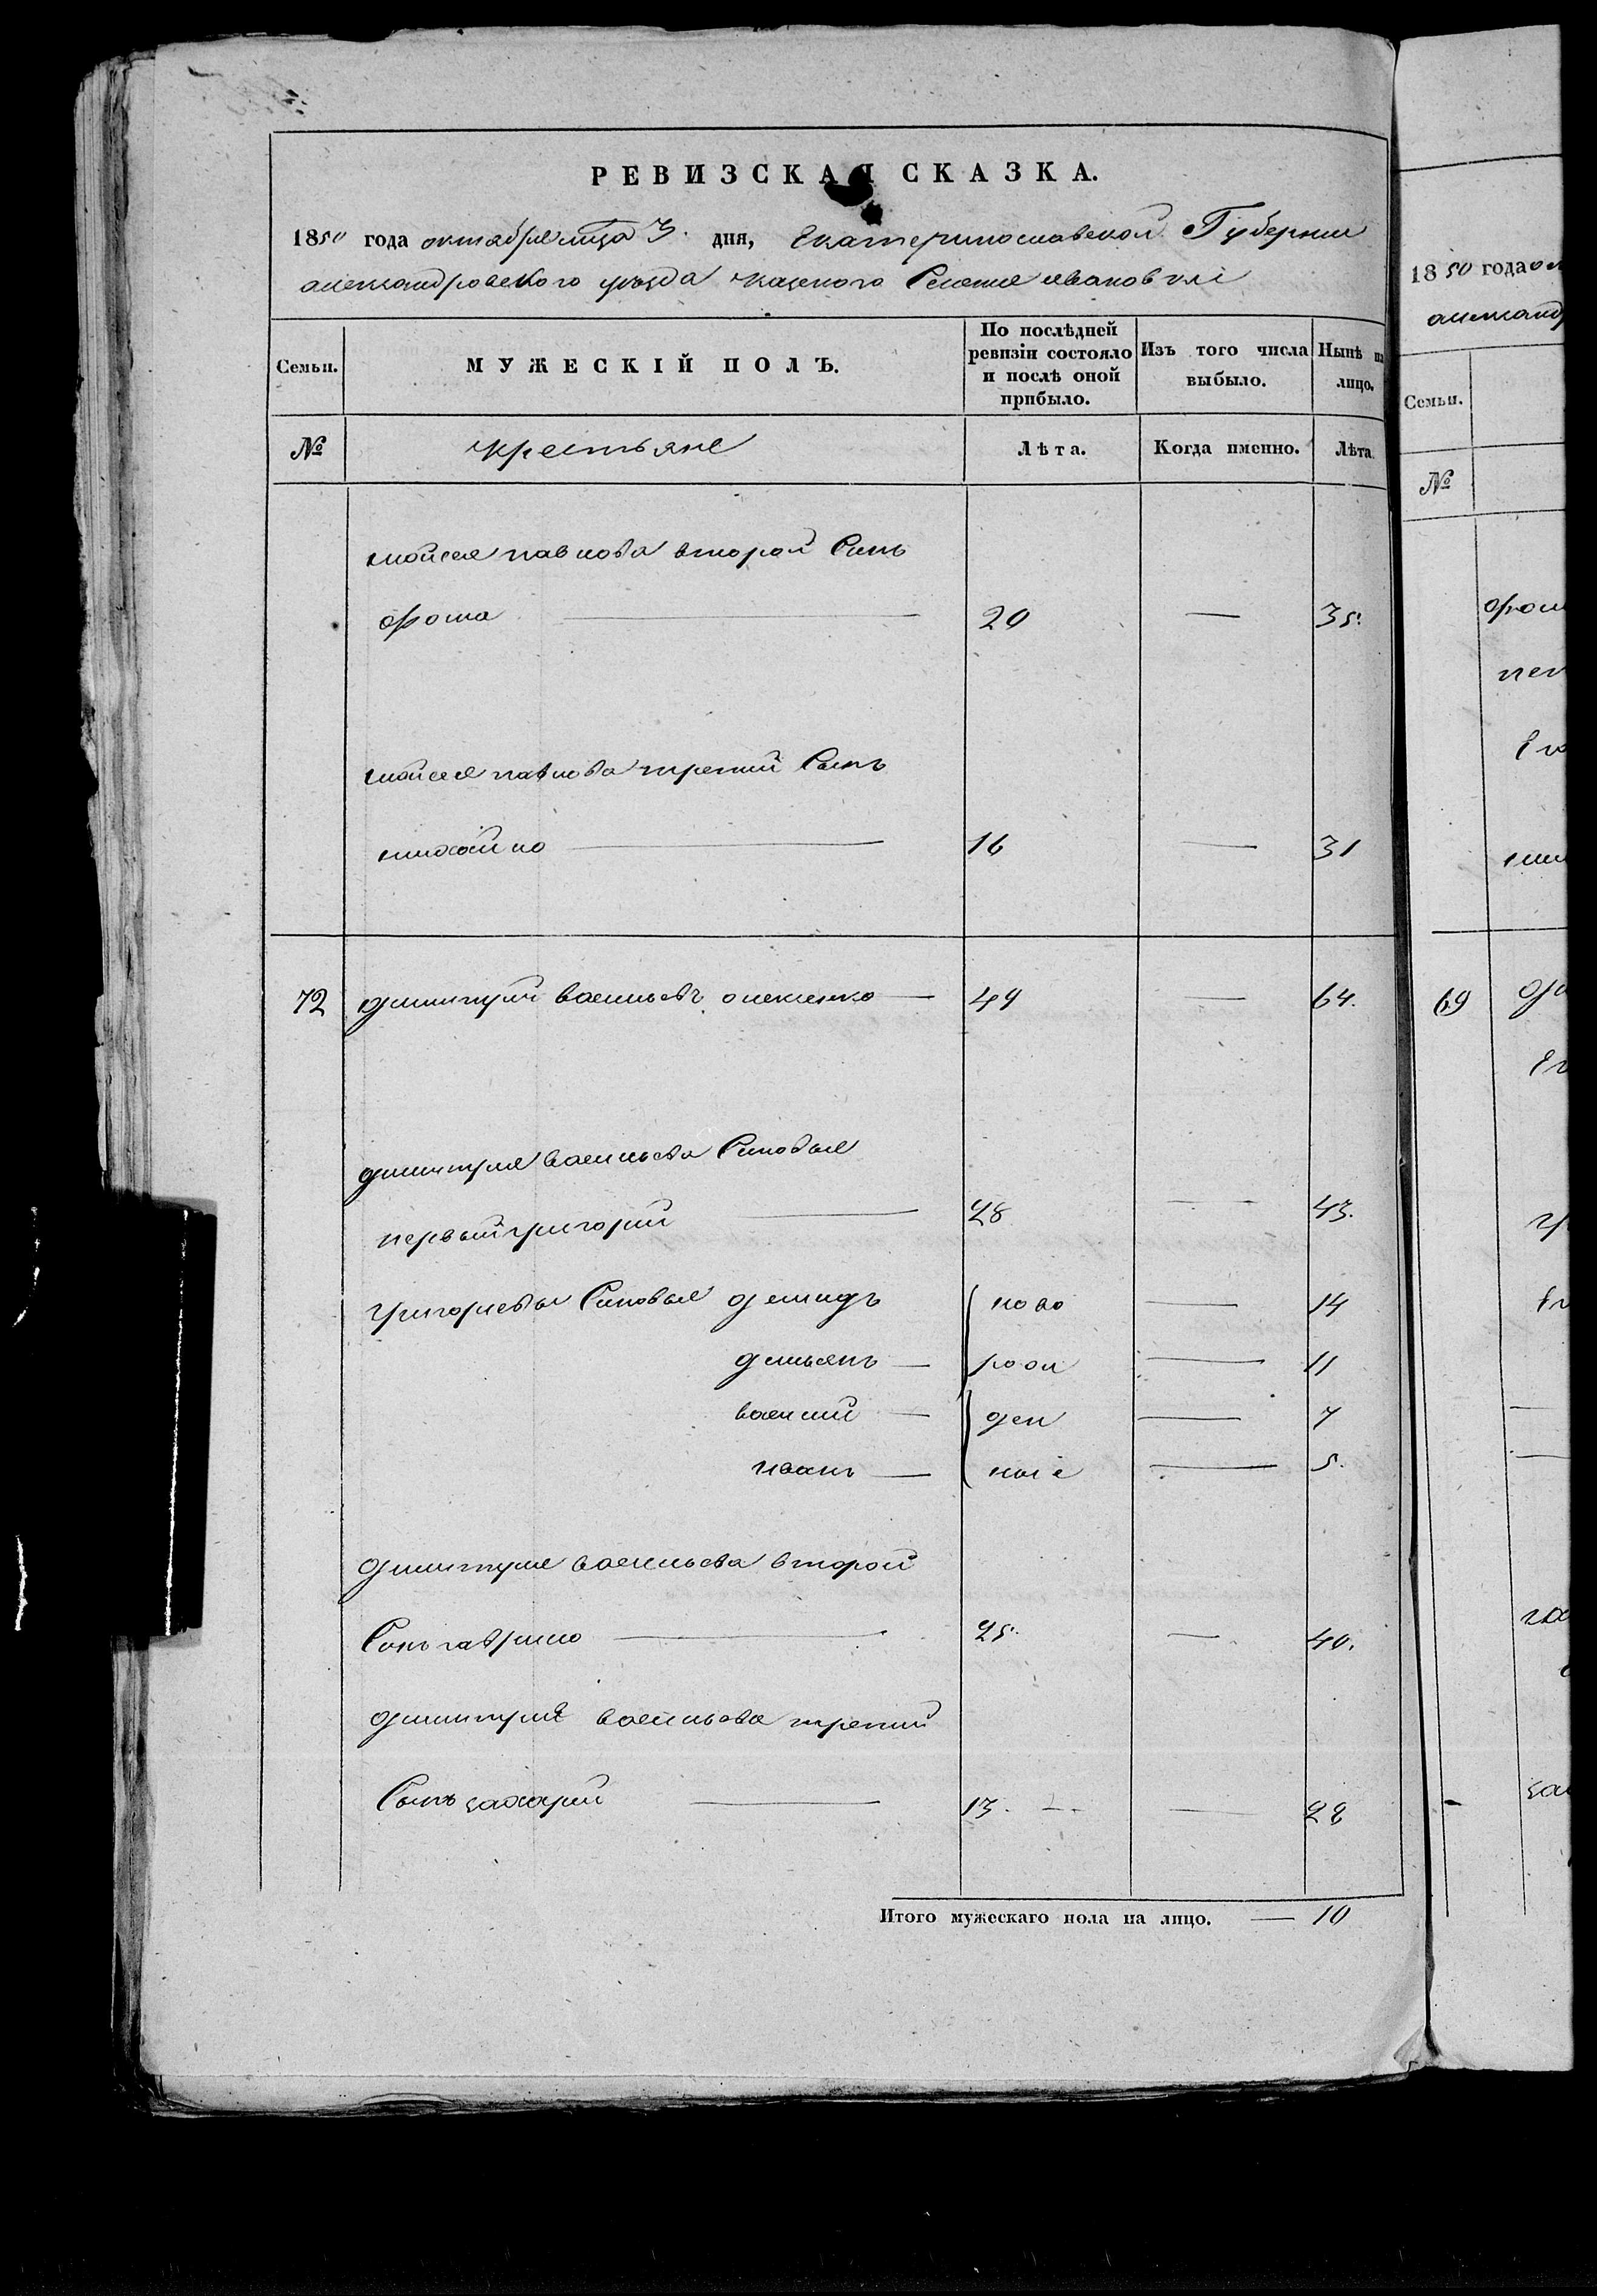 РЕВИЗСКАЯ СКАЗКА.
1850 года октября мца 3 дня, Екатеринославской Губернии
александровского уезда казеного Селения ивановки
Семьи.
МУЖЕСКІЙ ПОЛЪ.
По послѣдней ревизіи состояло и послѣ оной прибыло.
Изъ того числа выбыло.
Нынѣ на лицо.
№ крестьяне Лѣта. Когда именно. Лѣта.
мойсея павлова второй Синъ
фома 20 — 35.
мойсея павлова третий Сынъ
михайло 16 — 31
72 димитрий васильевъ олексенко 49 — 64.
димитрия васильева Синовья
первый григорий 28 — 43.
григориевы Синовья демидъ ново — 14
демьянъ — рож — 11
василий — ден — 7
иванъ — ные — 5.
димитрия васильева второй
Синъ гаврило 25. — 40.
димитрия васильева третий
Сынъ захарий 13. — 28
Итого мужескаго пола на лицо. — 10
1850 года
Семьи.
№
69